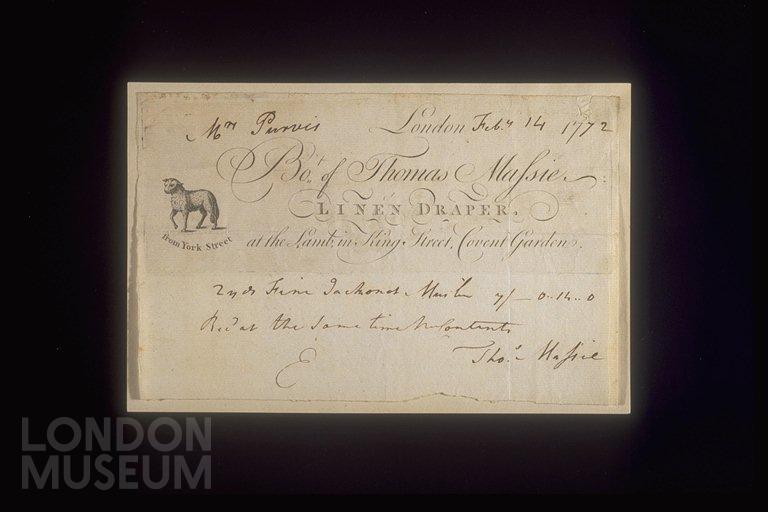 Mrs Purvis London Feb.y 14 1772
Bo.t of Thomas Massie.
LINEN DRAPER.
at the Lamb, in King Street, Covent Garden.
from York Street
2 yds Fine Jackonet Muslin 7/– 0..14..0
Rec'd at the same time the Contents
Tho.s Massie
LONDON
MUSEUM